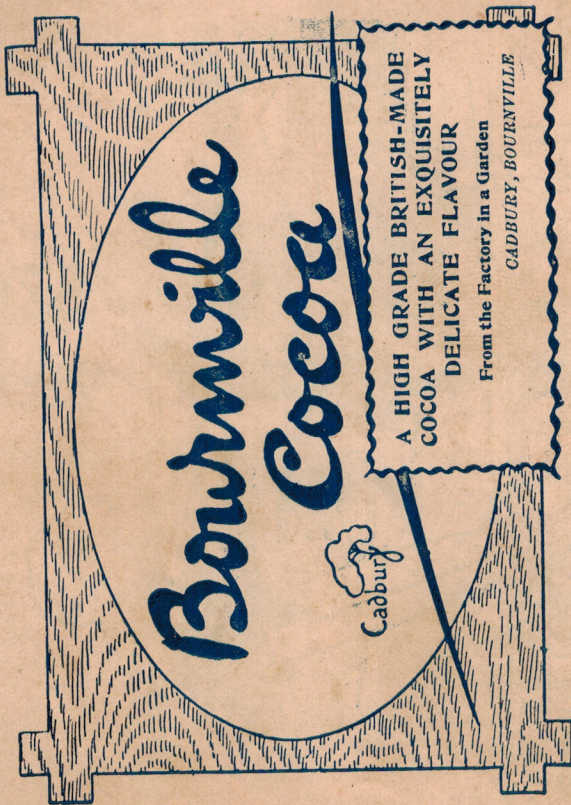 Bournville
Cocoa
Cadbury
A HIGH GRADE BRITISH-MADE
COCOA WITH AN EXQUISITELY
DELICATE FLAVOUR
From the Factory in a Garden
CADBURY, BOURNVILLE